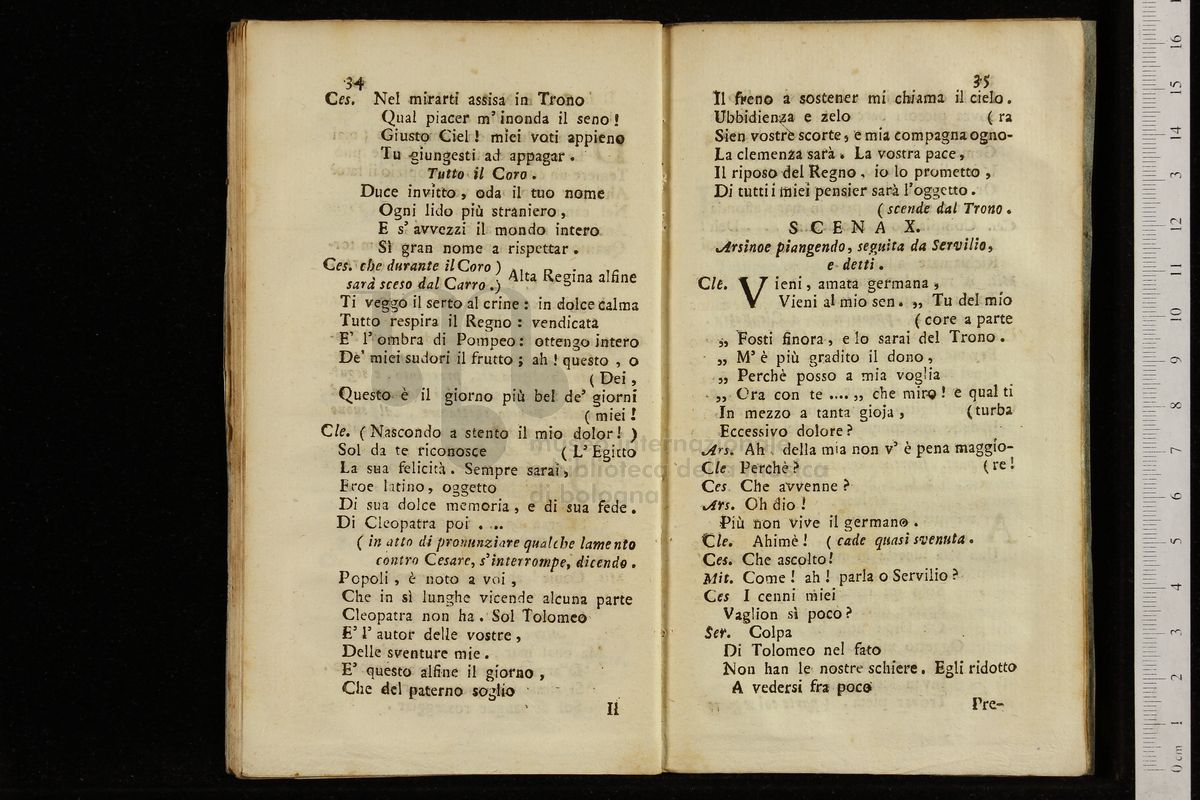 34
Ces. Nel mirarti assisa in Trono
Qual piacer m'inonda il seno!
Giusto Ciel! miei voti appieno
Tu giungesti ad appagar.
Tutto il Coro.
Duce invitto, oda il tuo nome
Ogni lido più straniero,
E s' avvezzi il mondo intero
Sì gran nome a rispettar.
Ces. che durante il Coro )
sarà sceso dal Carro.) Alta Regina alfine
Ti veggo il serto al crine: in dolce calma
Tutto respira il Regno: vendicata
E' l' ombra di Pompeo: ottengo intero
De' miei sudori il frutto; ah! questo, o
( Dei,
Questo è il giorno più bel de' giorni
( miei!
Cle. (Nascondo a stento il mio dolor! )
Sol da te riconosce ( L' Egitto
La sua felicità. Sempre sarai,
Eroe latino, oggetto
Di sua dolce memoria, e di sua fede.
Di Cleopatra poi ....
( in atto di pronunziare qualche lamento
contro Cesare, s'interrompe, dicendo.
Popoli, è noto a voi,
Che in sì lunghe vicende alcuna parte
Cleopatra non ha. Sol Tolomeo
E' l' autor delle vostre,
Delle sventure mie.
E' questo alfine il giorno,
Che del paterno soglio
Il
35
Il freno a sostener mi chiama il cielo.
Ubbidienza e zelo ( ra
Sien vostre scorte, e mia compagna ogno-
La clemenza sarà. La vostra pace,
Il riposo del Regno, io lo prometto,
Di tutti i miei pensier sarà l'oggetto.
( scende dal Trono.
SCENA X.
Arsinoe piangendo, seguita da Servilio,
e detti.
Cle. Vieni, amata germana,
Vieni al mio sen. „ Tu del mio
( core a parte
„ Fosti finora, e lo sarai del Trono.
„ M' è più gradito il dono,
„ Perchè posso a mia voglia
„ Ora con te .... „ che miro! e qual ti
In mezzo a tanta gioja, (turba
Eccessivo dolore?
Ars. Ah. della mia non v' è pena maggio-
Cle Perchè? (re!
Ces. Che avvenne?
Ars. Oh dio!
Più non vive il germano.
Cle. Ahimè! ( cade quasi svenuta.
Ces. Che ascolto!
Mit. Come! ah! parla o Servilio?
Ces I cenni miei
Vaglion sì poco?
Ser. Colpa
Di Tolomeo nel fato
Non han le nostre schiere. Egli ridotto
A vedersi fra poco
Pre-
museo internazionale
biblioteca della musica
di bologna
0 cm 1 2 3 4 5 6 7 8 9 10 11 12 13 14 15 16